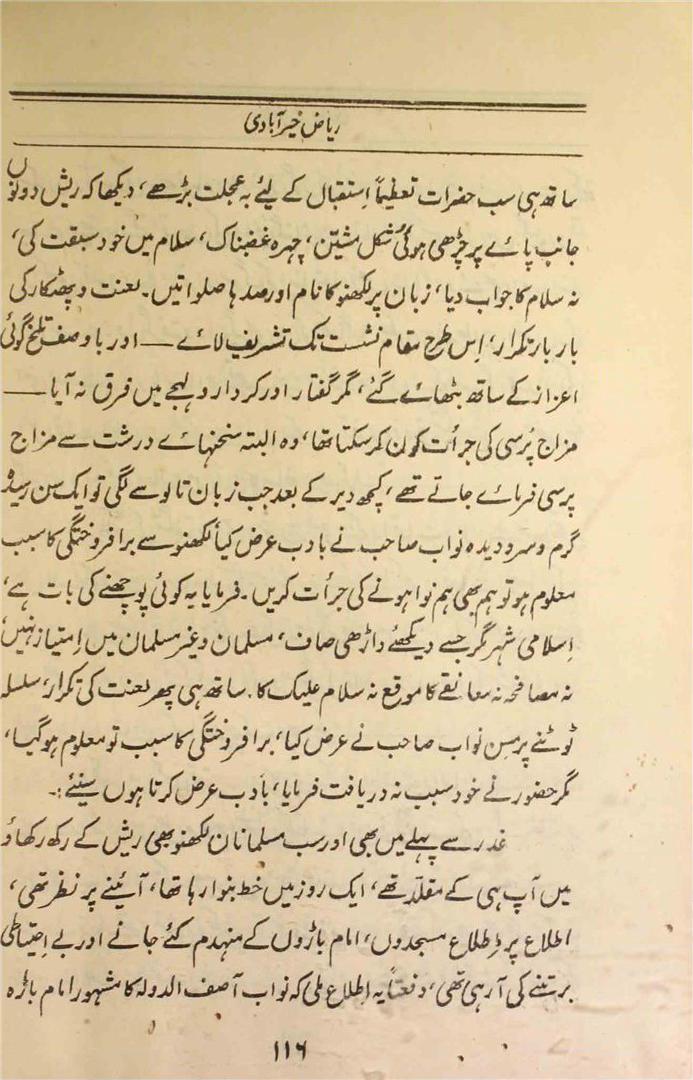 ریاض خیرآبادی
ساتھ ہی سب حضرات تعظیماً اِستقبال کے لیئے بہ عجلت بڑھے، دیکھا کہ ریش دونوں
جانب پائے پر چڑھی ہوئی شکل مشیّن، چہرہ غضبناک، سلام میں خود سبقت کی،
نہ سلام کا جواب دیا، زبان پر لکھنؤ کا نام اور صدہا صلواتیں۔ لعنت و پھٹکار کی
بار بار تکرار، اِس طرح مقام نشست تک تشریف لائے — اور باوصف تلخ گوئی
اعزاز کے ساتھ بٹھائے گئے، مگر گفتار اور کردار و لہجے میں فرق نہ آیا —
مزاج پُرسی کی جرأت کون کر سکتا تھا، وہ البتہ سخنہائے درشت سے مزاج
پرسی فرمائے جاتے تھے، کچھ دیر کے بعد جب زبان تالو سے لگی تو ایک سن رسیدہ
گرم و سرد دیدہ نواب صاحب نے بادب عرض کیا لکھنؤ سے برافروختگی کا سبب
معلوم ہو تو ہم بھی ہم نوا ہونے کی جرأت کریں۔ فرمایا یہ کوئی پوچھنے کی بات ہے،
اِسلامی شہر مگر جسے دیکھئے داڑھی صاف، مسلمان و غیر مسلمان میں اِمتیاز نہیں،
نہ مصافحہ نہ معانقے کا موقع نہ سلام علیک کا۔ ساتھ ہی پھر لعنت کی تکرار، سلسلہ
ٹوٹنے پر مسِن نواب صاحب نے عرض کیا، برافروختگی کا سبب تو معلوم ہو گیا،
مگر حضور نے خود سبب نہ دریافت فرمایا، بادب عرض کرتا ہوں سنیئے:۔
غدر سے پہلے میں بھی اور سب مسلمانان لکھنؤ بھی ریش کے رکھ رکھاؤ
میں آپ ہی کے مقلّد تھے، ایک روز میں خط بنوا رہا تھا، آئینے پر نظر تھی،
اطلاع پر اِطلاع مسجدوں، امام باڑوں کے منہدم کئے جانے اور بے احتیاطی
برتنے کی آرہی تھی، دفعتاً یہ اطلاع ملی کہ نواب آصف الدولہ کا مشہور امام باڑہ
۱۱۶